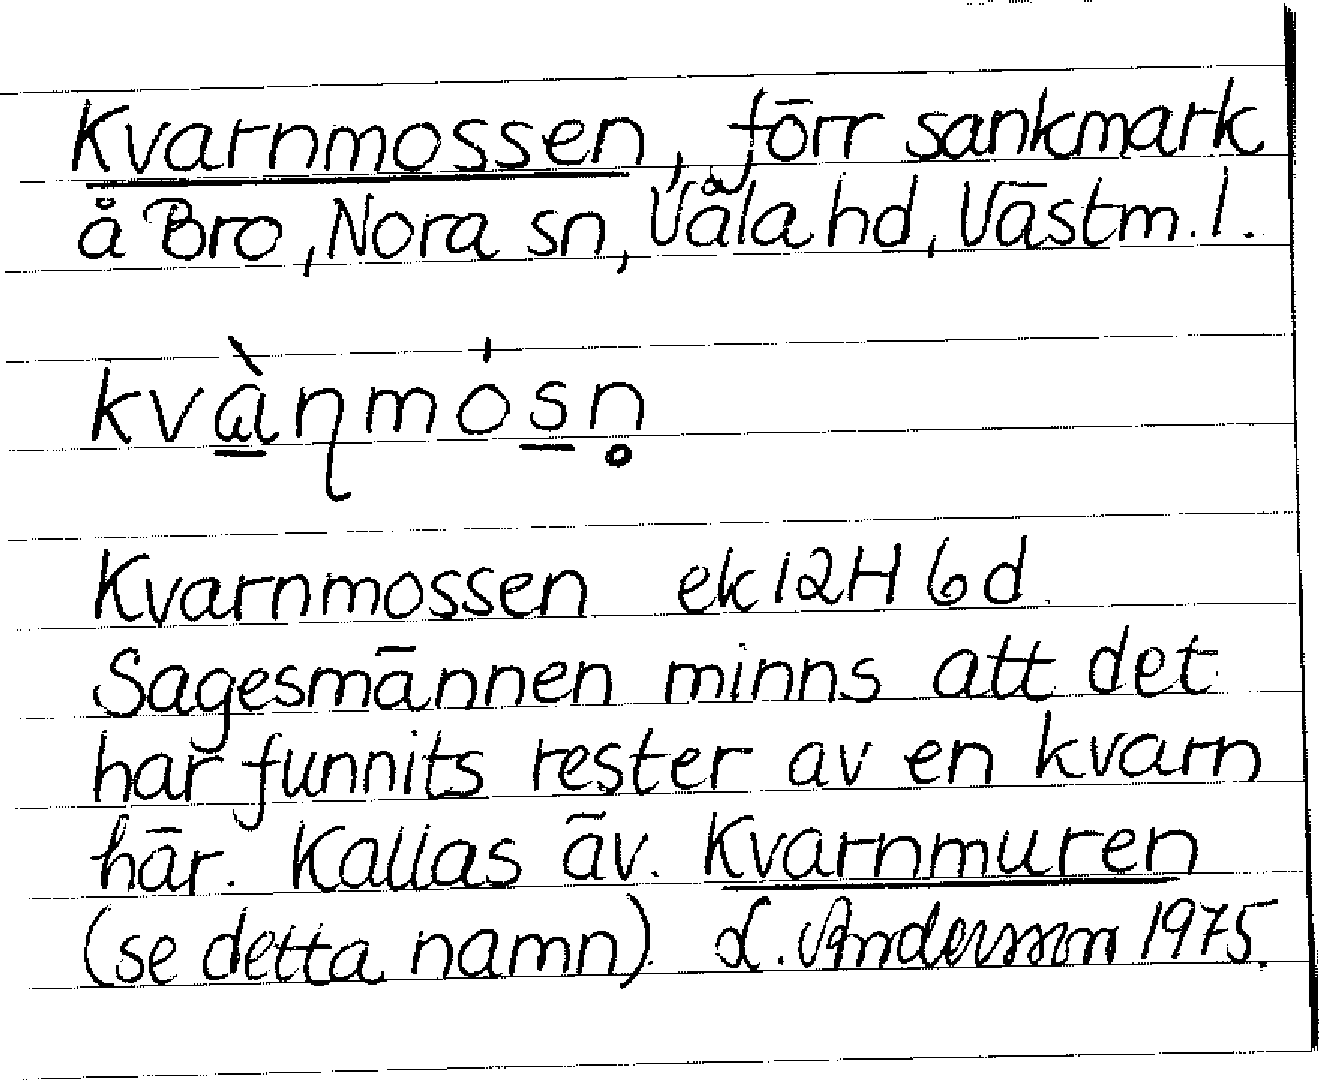 Kvarnmossen, förr sankmark
å Bro, Nora sn, Våla hd, Västm. l.
kvànmósn̥
Kvarnmossen ek 12H 6d
Sagesmännen minns att det
har funnits rester av en kvarn
här. Kallas äv. Kvarnmuren
(se detta namn). L. Andersson 1975.